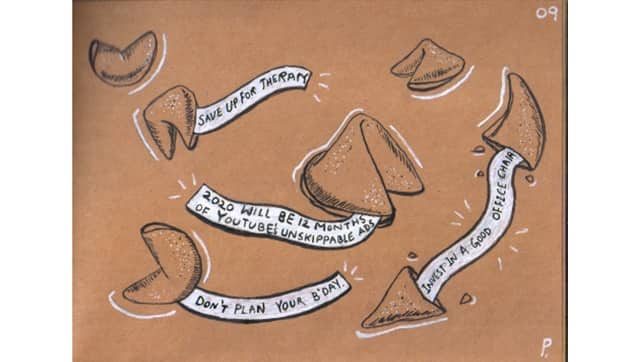 09
SAVE UP FOR THERAPY
2020 WILL BE 12 MONTHS
OF YOUTUBE'S UNSKIPPABLE ADS
INVEST IN A GOOD OFFICE CHAIR
DON'T PLAN YOUR B'DAY.
P.